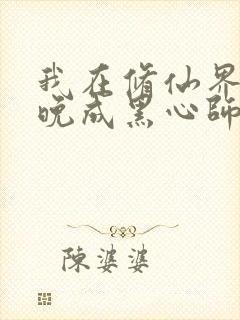 我在脩仙界
晚成黑心師
陳婆婆